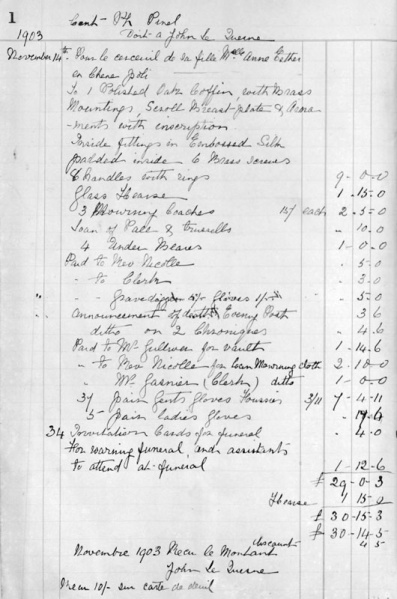 1
Cent. Ph Pinel
1903 Doit a John le Quesne
November 14th Pour le cerceuil de sa fille Mlle Anne Esther
en Chene Poli
To 1 Polished Oak Coffin with Brass
Mountings, Scroll Breast plate &
-ments with inscription
Inside fittings in Embossed Silk
padded inside 6 Brass screws
6 handles with rings 9-0-0
Glass Hearse 1-15-0
3 Mourning Coaches 15/ each 2-5-0
Loan of Pall & " 10-0
4 Under Bearers 1-0-0
Paid to Rev Nicolle " 5-0
" - to Clerk " 3-0
" - - Gravedigger 5/- Gloves " 5-0
Announcement of death Evening Post " 3 6
ditto on 2 Chroniques " 4-6
Paid to Mr for Vault 1-14-6
" to Rev Nicolle for Loan Mourning Cloth 2-10-0
" Mr Gasnier (Clerk) ditto 1-0-0
37 Pairs Gents Gloves 3/11 7-4-11
5 Pair ladies Gloves " 17-6
34 Invitation Cards for funeral " 4-0
For warning funeral, and assistants
to attend at funeral 1-12-6
£ 29-0-3
Hearse 1 15-0
£ 30-15-3
£ 30-14-5
Novembre 1903 Recu le Montant discount 4 5
John le Quesne
Recu 10/- sur carte de deuil